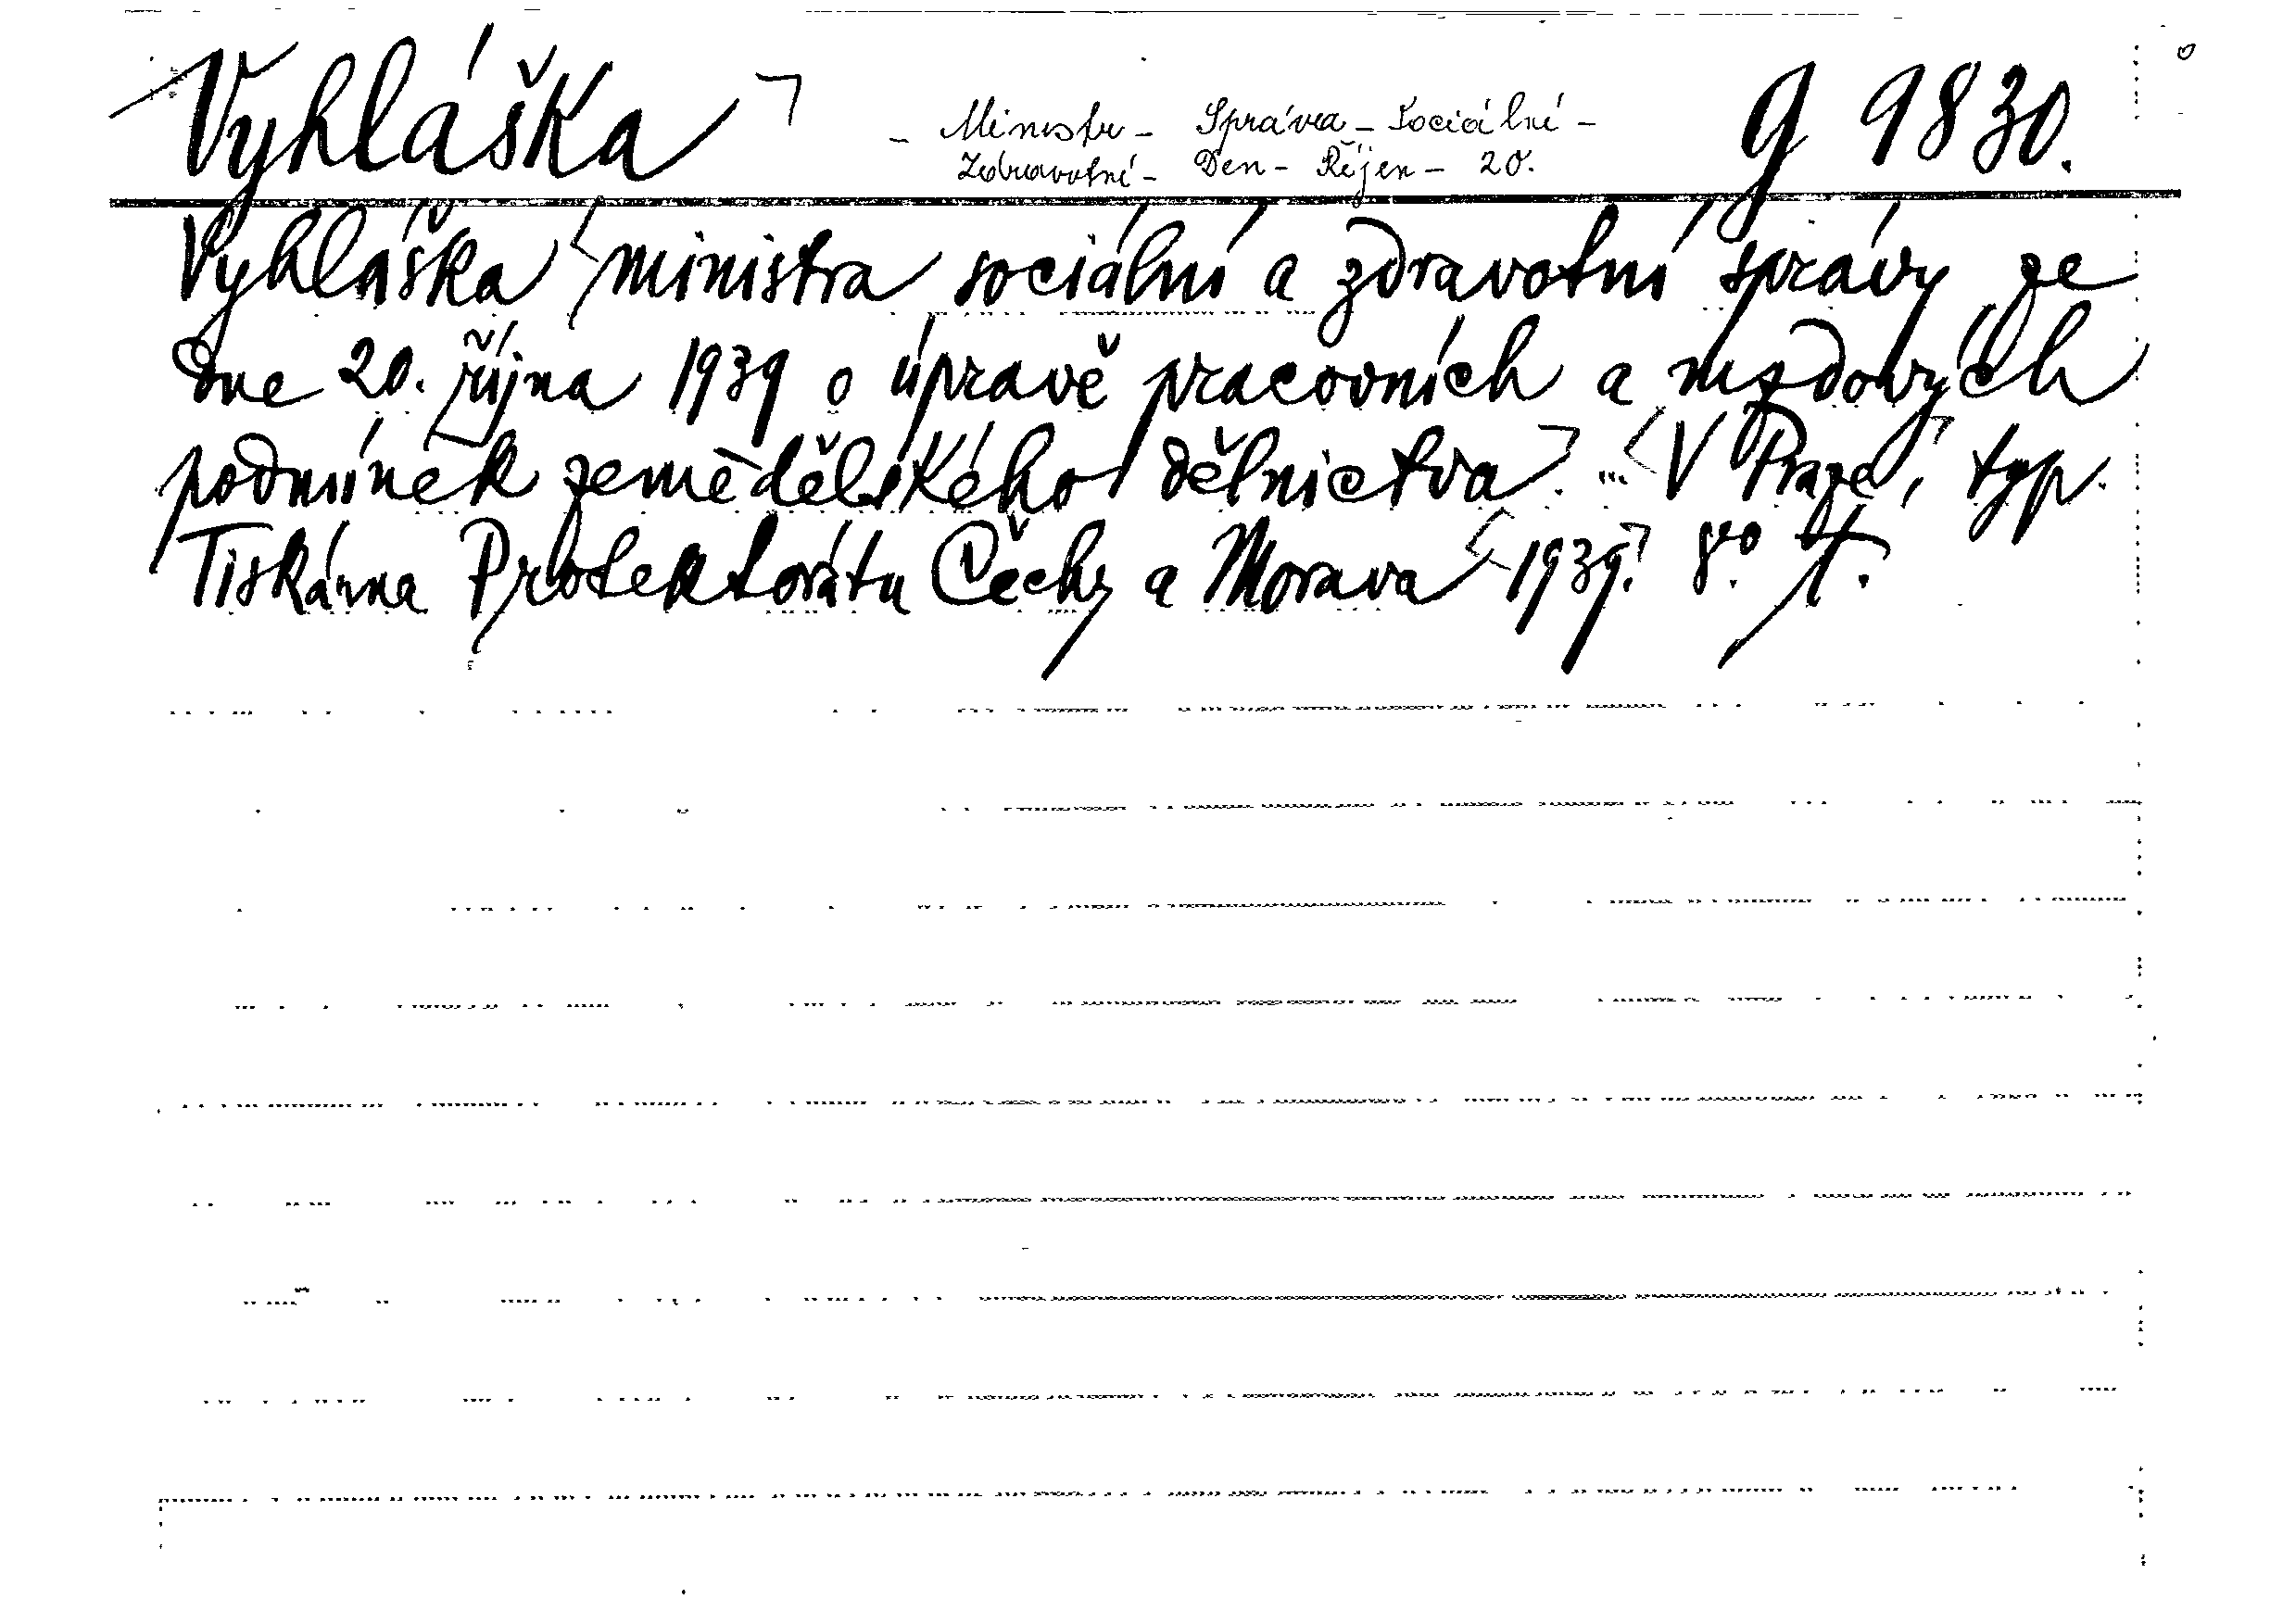 Vyhláška
- Ministr - Správa - Sociální -
Zdravotní - Den - Říjen - 20.
g 9830.
Vyhláška ministra sociální a zdravotní správy ze
dne 20. října 1939 o úpravě pracovních a mzdových
podmínek zemědělského dělnictva. ... V Praze, typ.
Tiskárna Protektorátu Čechy a Morava 1939. 8o.